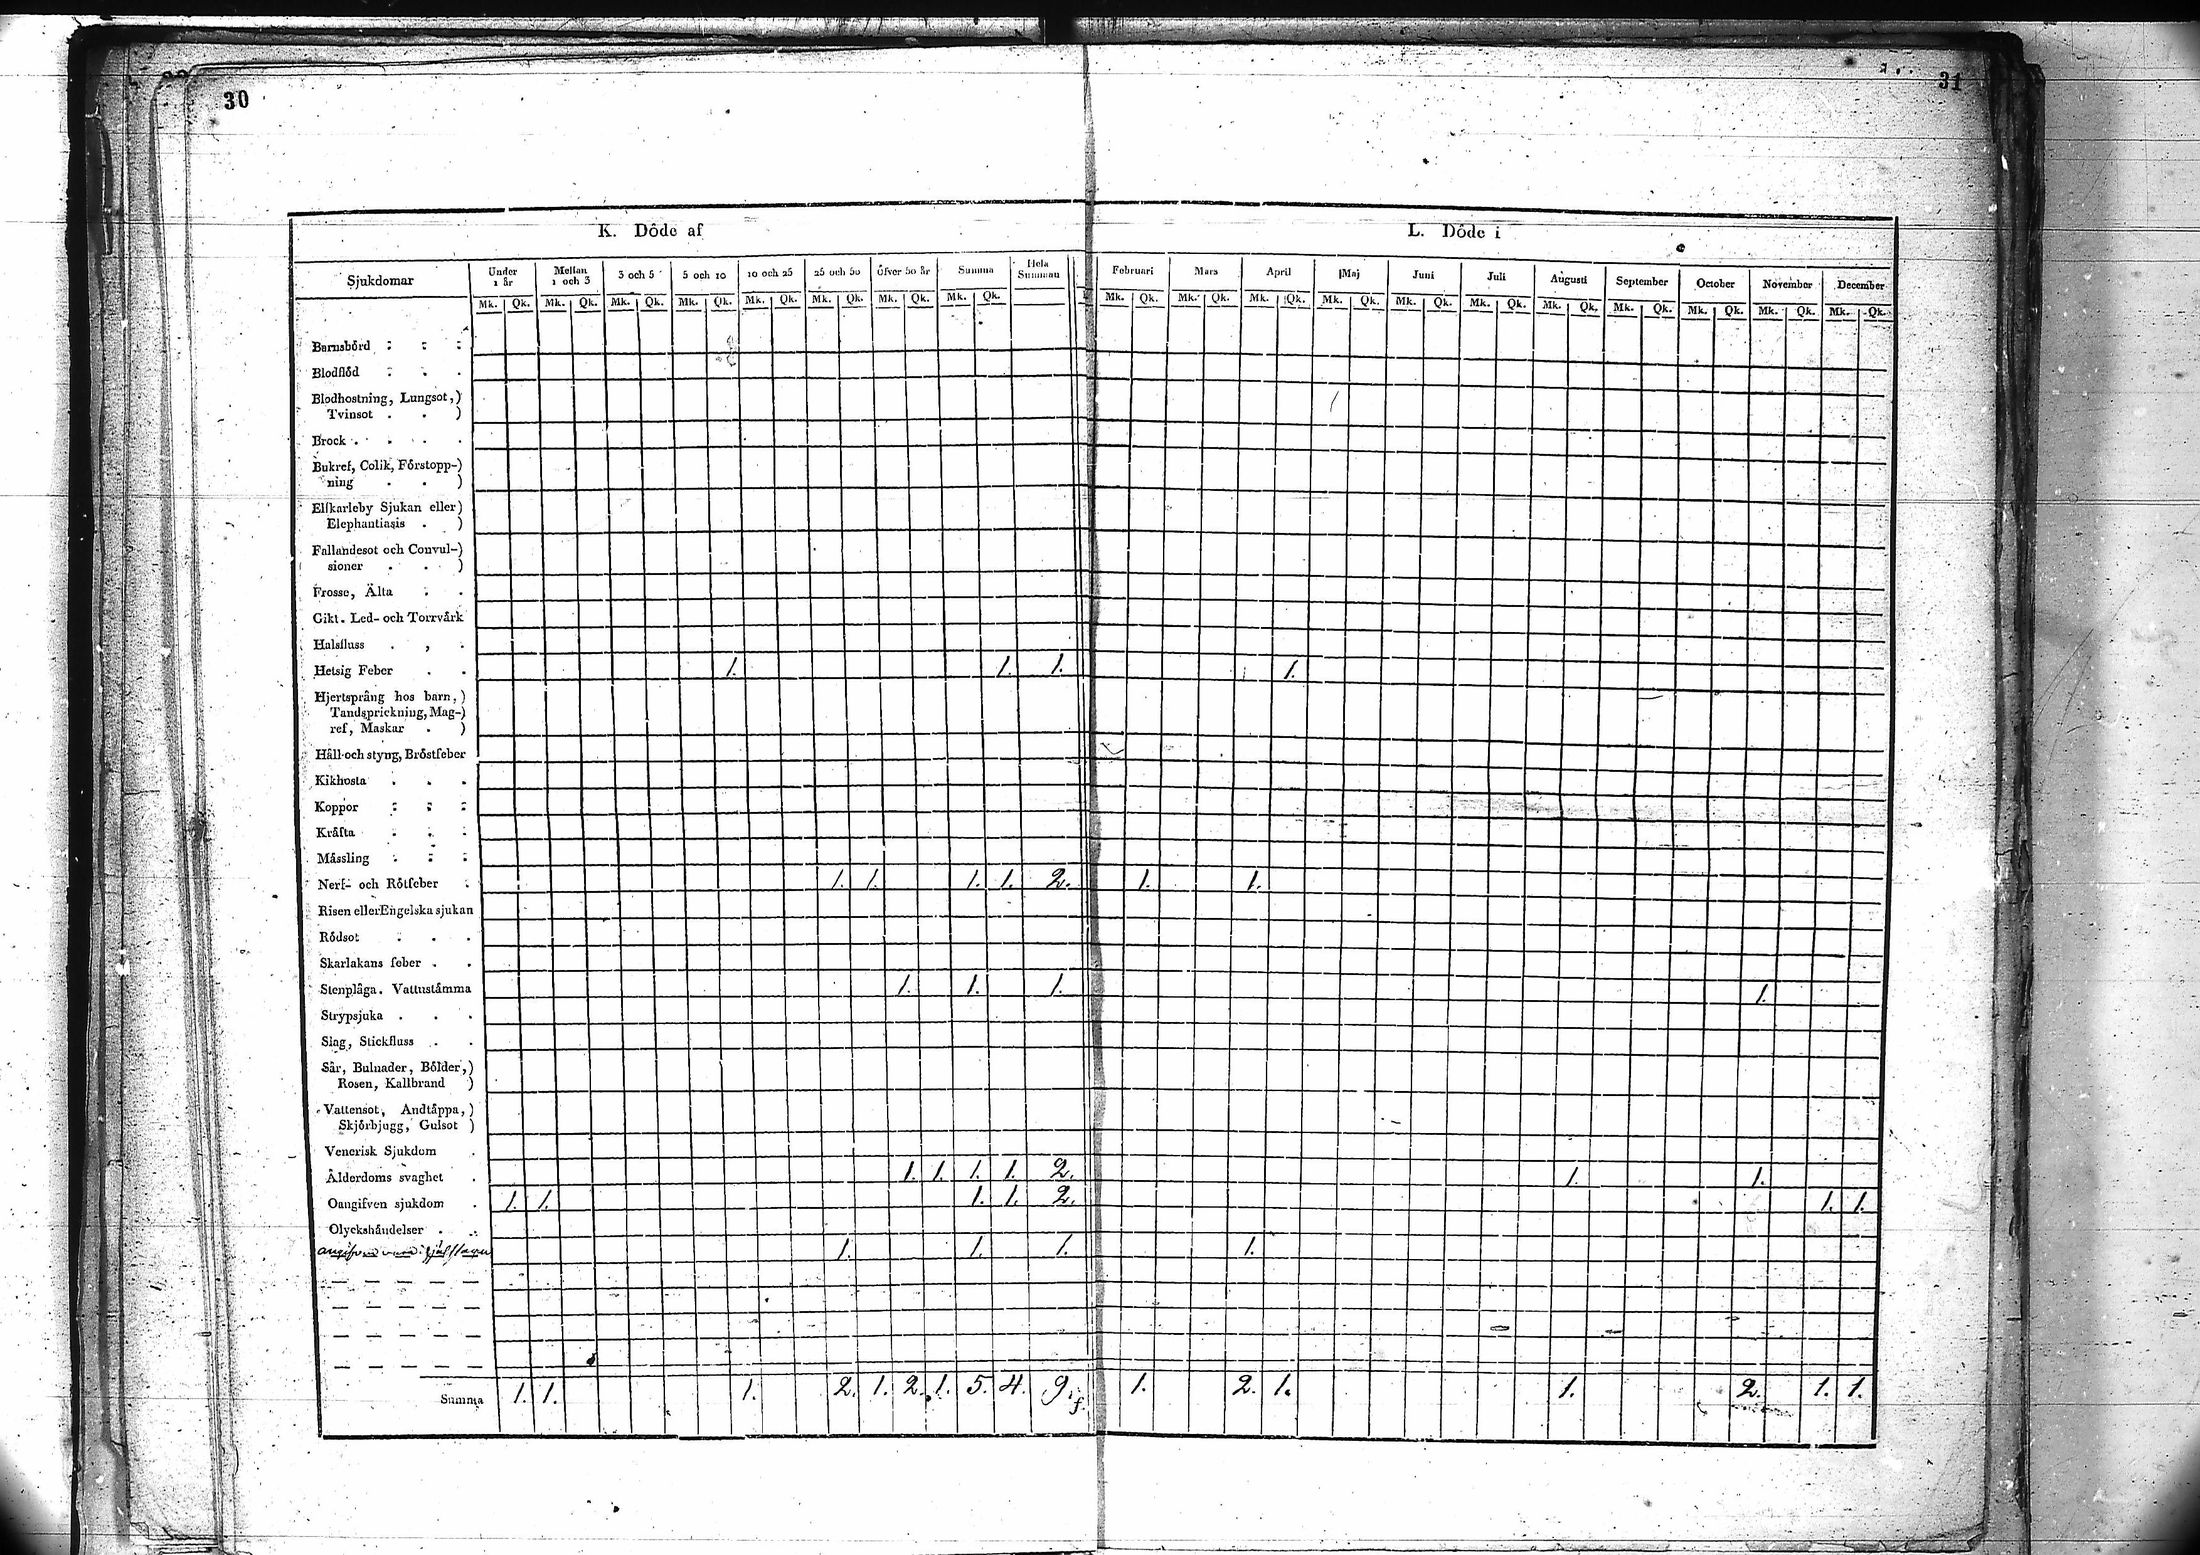 30
31
K. Döde af
L. Döde i
Sjukdomar
Under 1 år
Mellan 1 och 3
3 och 5
5 och 10
10 och 25
25 och 50
Öfver 50 år
Summa
Hela Summan
Februari
Mars
April
Maj
Juni
Juli
Augusti
September
October
November
December
Mk. Qk. Mk. Qk. Mk. Qk. Mk. Qk. Mk. Qk. Mk. Qk. Mk. Qk. Mk. Qk. Mk. Qk. Mk. Qk. Mk. Qk. Mk. Qk. Mk. Qk. Mk. Qk. Mk. Qk. Mk. Qk. Mk. Qk. Mk. Qk. Mk. Qk.
Barnsbörd
Blodflöd
Blodhostning, Lungsot,)
Tvinsot )
Brock
Bukref, Colik, Förstopp-)
ning )
Elfkarleby Sjukan eller)
Elephantiasis )
Fallandesot och Convul-)
sioner )
Frosse, Älta
Gikt. Led- och Torrvärk
Halsfluss
Hetsig Feber 1. 1. 1. 1.
Hjertsprång hos barn,)
Tandsprickning, Mag-)
ref, Maskar )
Håll-och styng, Bröstfeber
Kikhosta
Koppor
Kräfta
Mässling
Nerf- och Rötfeber 1. 1. 1. 1. 2. 1. 1.
Risen eller Engelska sjukan
Rödsot
Skarlakans feber
Stenplåga. Vattustämma 1. 1. 1. 1.
Strypsjuka
Slag, Stickfluss
Sår, Bulnader, Bölder,)
Rosen, Kallbrand )
Vattensot, Andtäppa,)
Skjörbjugg, Gulsot )
Venerisk Sjukdom
Ålderdoms svaghet 1. 1. 1. 1. 2. 1. 1.
Oangifven sjukdom 1. 1. 1. 1. 2. 1. 1.
Olyckshändelser
1. 1. 1. 1.
Summa 1. 1. 1. 2. 1. 2. 1. 5. 4. 9. 1. 2. 1. 1. 2. 1. 1.